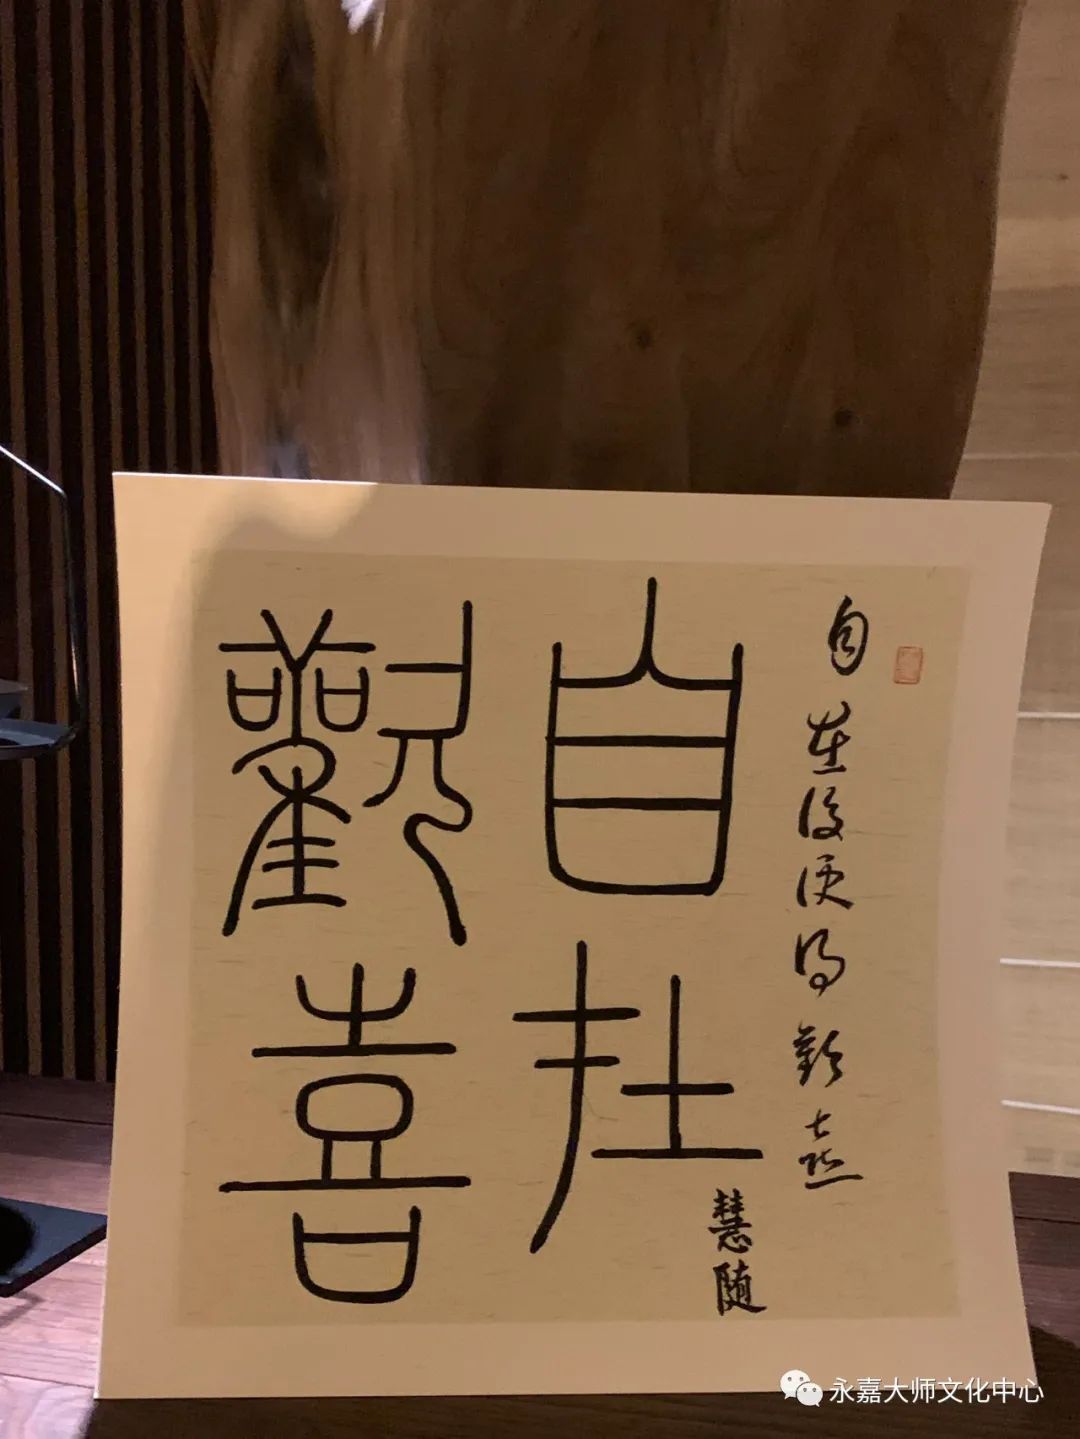 自在後便得歡喜
自在
歡喜
慧随
永嘉大师文化中心